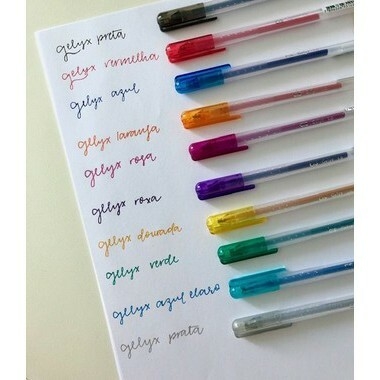 gelyx preta
gelyx vermelha
gelyx azul
gelyx laranja
gelyx rosa
gelyx roxa
gelyx dourada
gelyx verde
gelyx azul claro
gelyx prata